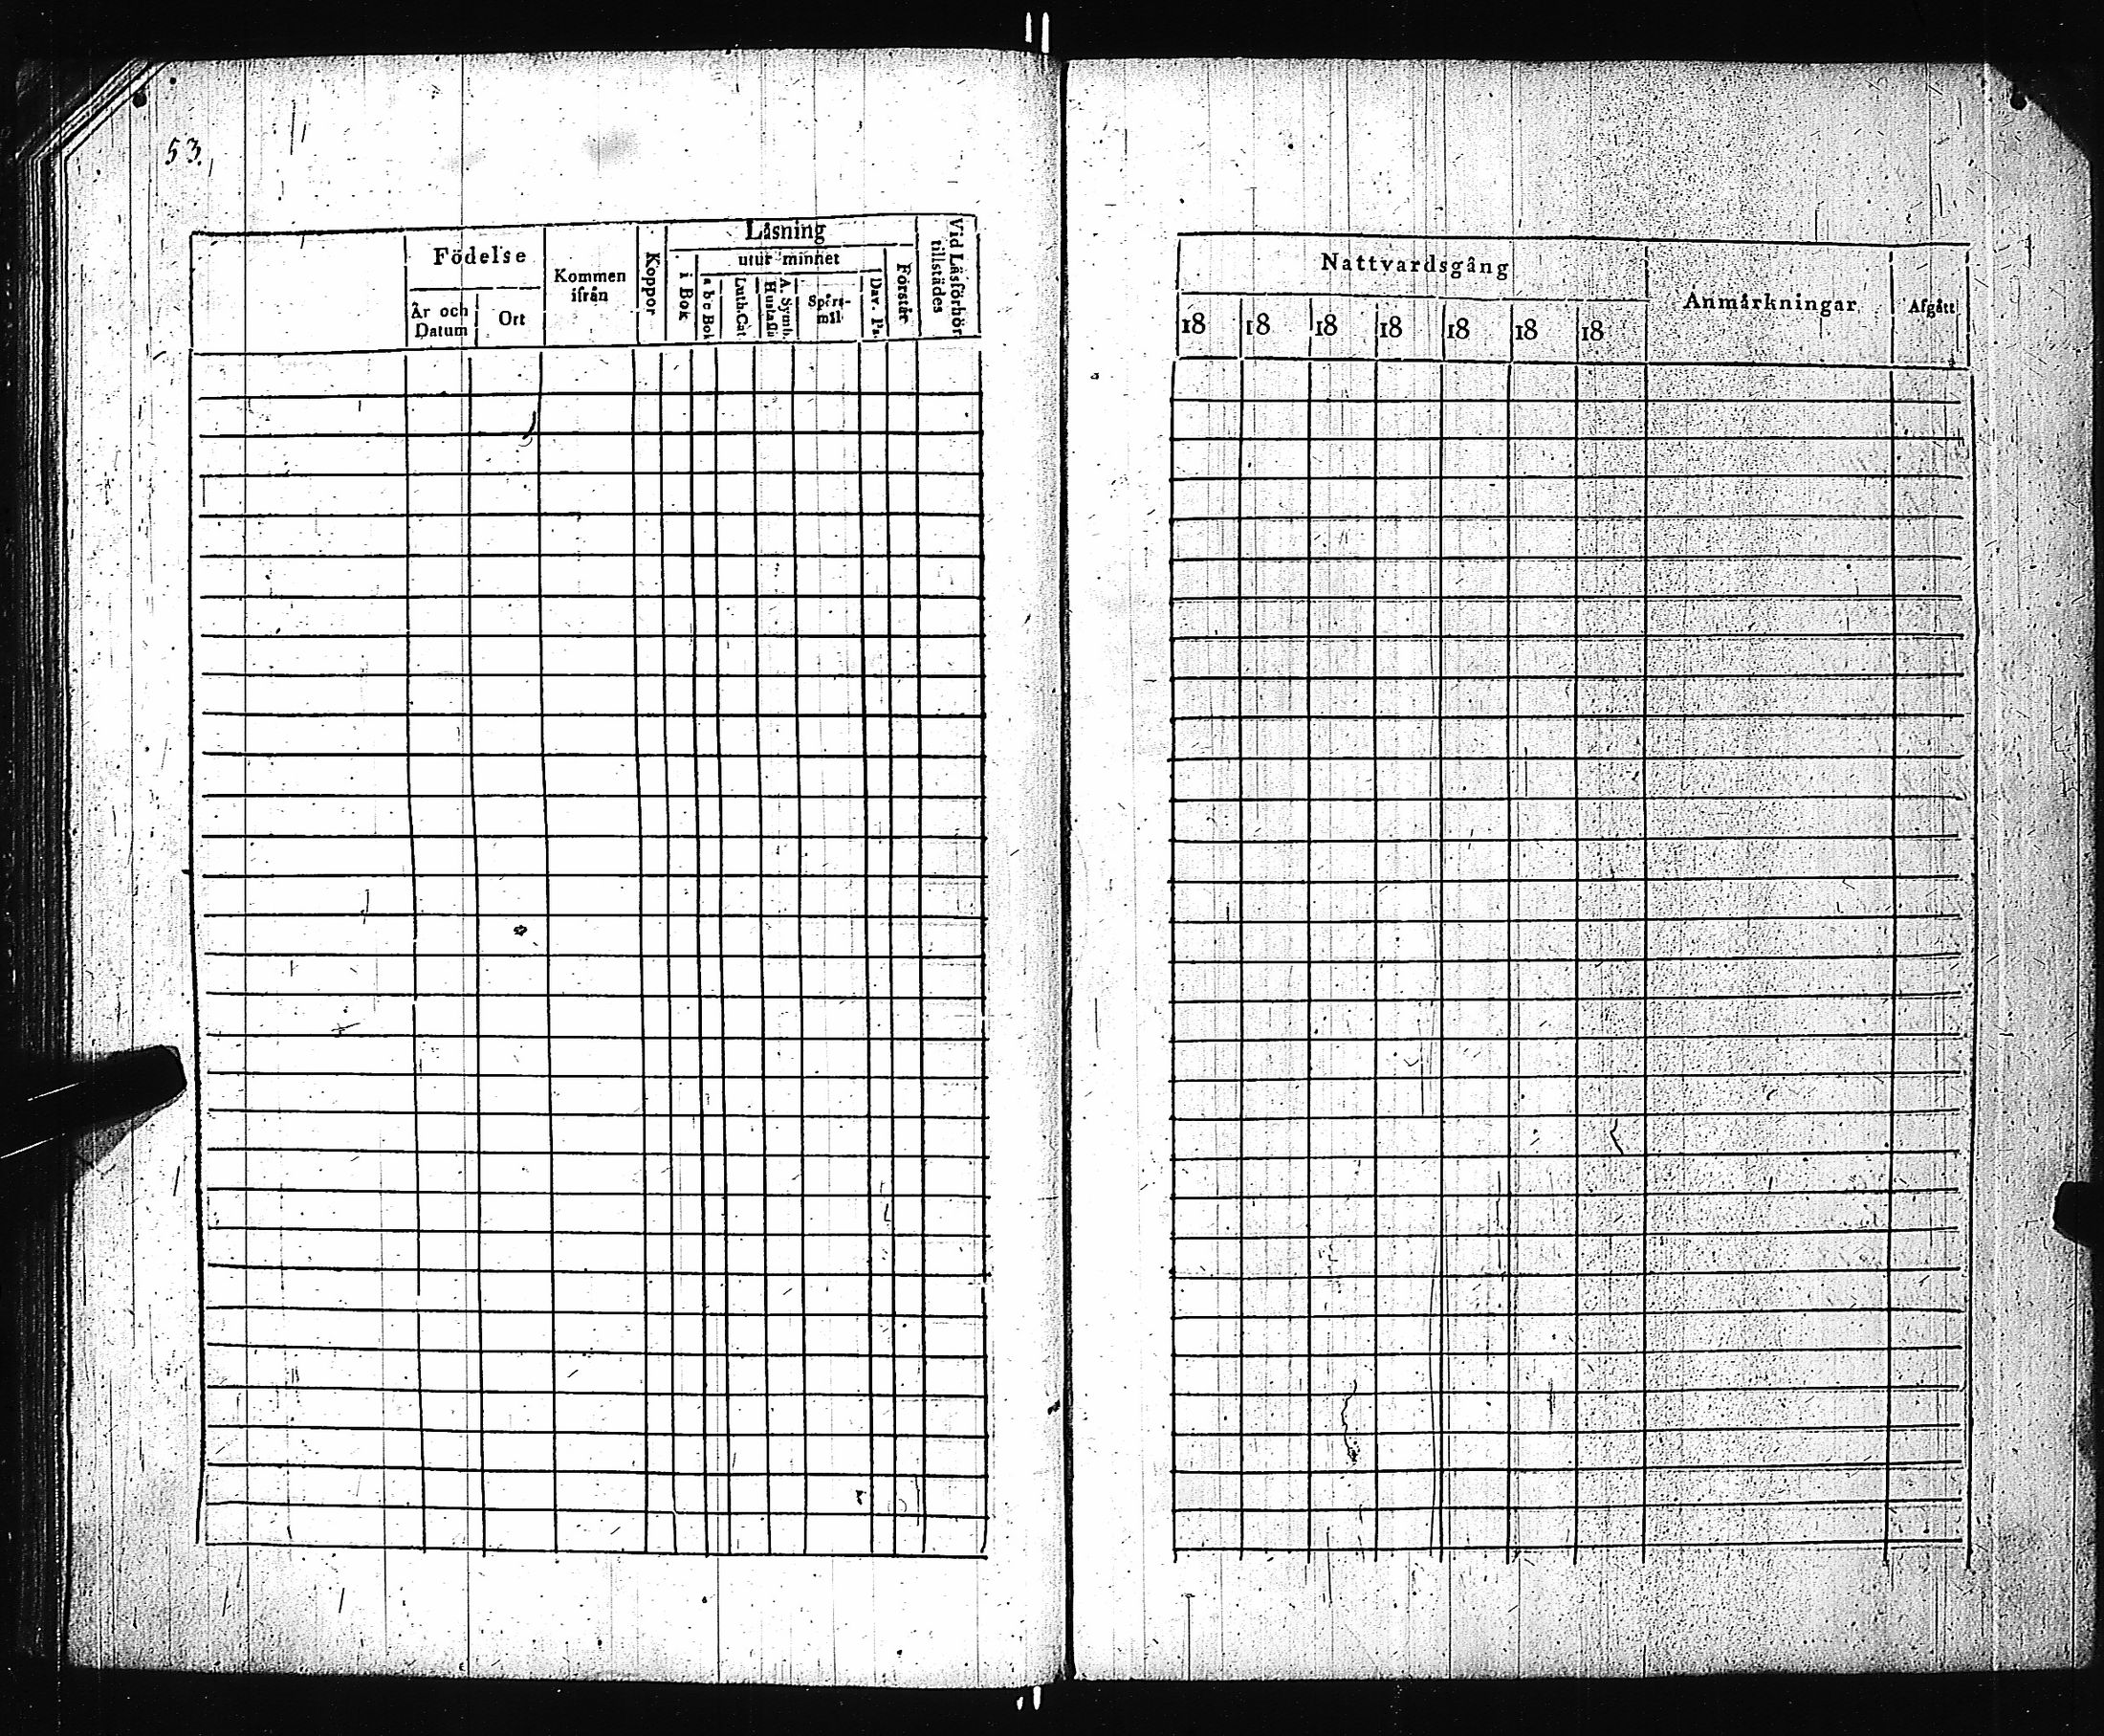 53.
Läsning
Födelse
utur minnet
Kommen ifrån
Koppor
i Bok
a b c Bok
Luth. Cat.
A. Symb. Hustafla
Spörs-mål
Dav. Ps.
Förstår
Vid Läsförhör tillstädes
År och Datum
Ort
Nattvardsgång
Anmärkningar
Afgått
18 18 18 18 18 18 18